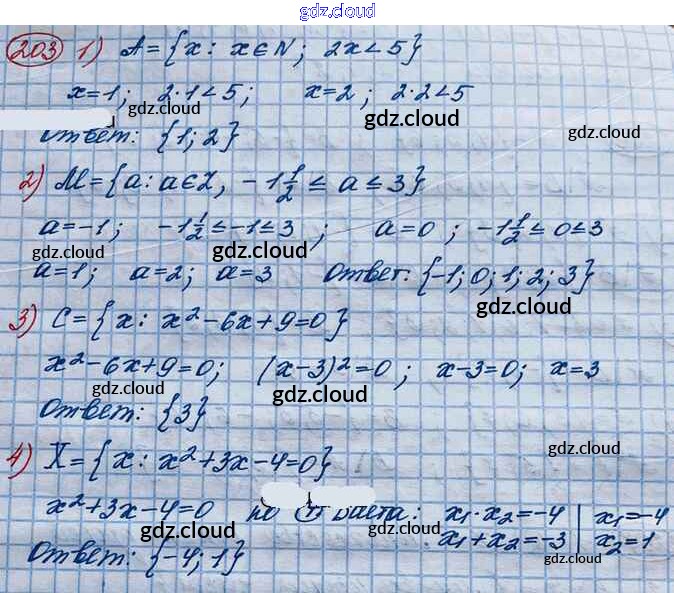 gdz.cloud
203 1) A={x: x∈N; 2x<5}
x=1; 2·1<5; x=2; 2·2<5
gdz.cloud gdz.cloud
Ответ: {1; 2} gdz.cloud
2) M={a: a∈Z, -1 1/2 ≤ a ≤ 3}
a=-1; -1 1/2 ≤ -1 ≤ 3; a=0; -1 1/2 ≤ 0 ≤ 3
gdz.cloud gdz.cloud gdz.cloud
a=1; a=2; a=3 Ответ: {-1; 0; 1; 2; 3}
gdz.cloud
3) C={x: x²-6x+9=0}
x²-6x+9=0; (x-3)²=0; x-3=0; x=3
gdz.cloud gdz.cloud
Ответ: {3}
gdz.cloud
4) X={x: x²+3x-4=0}
x²+3x-4=0 по Виета: x₁·x₂=-4 | x₁=-4
gdz.cloud gdz.cloud x₁+x₂=-3 | x₂=1
Ответ: {-4; 1} gdz.cloud